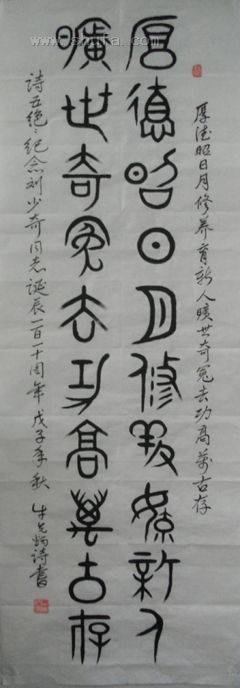 厚德昭日月修养育新人曠世奇冤去功高萬古存
厚德昭日月修養育新人
曠世奇冤去功高萬古存
詩五绝:纪念刘少奇同志诞辰一百一十周年戊子季秋 詩書